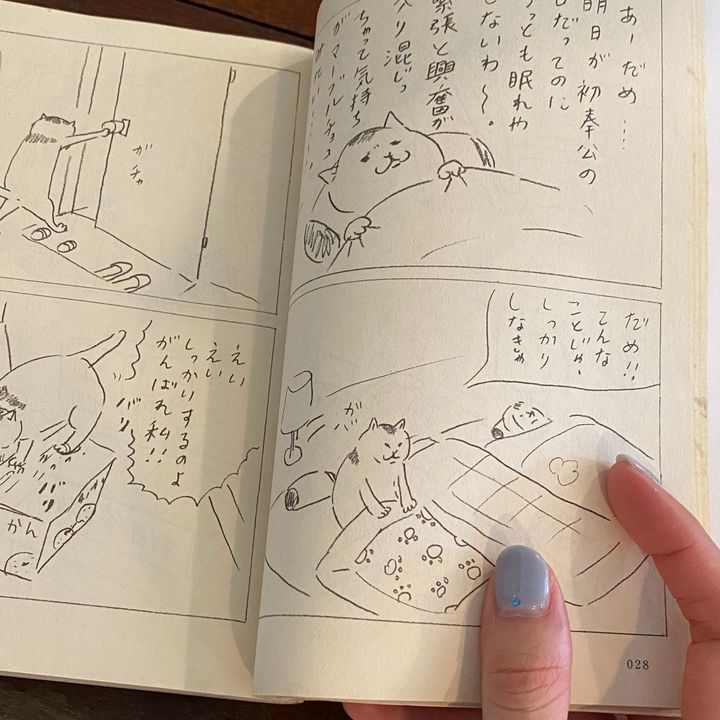 あーだめ…
明日が初奉公の
日だってのに
っとも眠れや
しないわ〜。
緊張と興奮が
入り混じっ
ちゃって気持ち
がマーブルチョ
だめ!!
こんな
ことじゃ、
しっかり
しなきゃ
がバ
028
ガチャ
えい
えい
しっかりするのよ
がんばれ私!!
バリ
かん